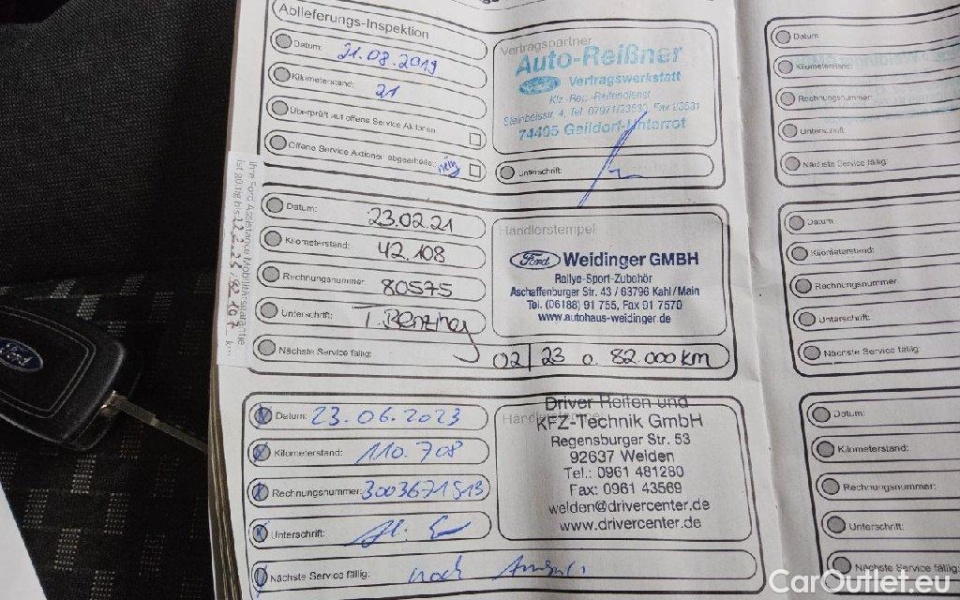 Ablieferungs-Inspektion
Datum: 21.08.2019
Kilometerstand: 21
Überprüft auf offene Service Aktionen
Offene Service Aktionen abgearbeitet: nein
Vertragspartner
Auto-Reißner
Ford Vertragswerkstatt
74405 Gaildorf-Unterrot
Unterschrift:
Ihre Ford Assistance Mobilitätsgarantie
ist gültig bis
Datum: 23.02.21
Kilometerstand: 42.108
Rechnungsnummer: 80575
Unterschrift: T. Benzing
Nächste Service fällig: 02/23 o. 82.000 km
Händlerstempel
Ford Weidinger GMBH
Rallye-Sport-Zubehör
Aschaffenburger Str. 43 / 63796 Kahl/Main
Tel. (06188) 91 755, Fax 91 7570
www.autohaus-weidinger.de
Datum: 23.06.2023
Kilometerstand: 110.708
Rechnungsnummer: 3003671513
Unterschrift:
Nächste Service fällig: nach
Driver Reifen und
KFZ-Technik GmbH
Regensburger Str. 53
92637 Weiden
Tel.: 0961 481260
Fax: 0961 43569
weiden@drivercenter.de
www.drivercenter.de
Datum:
Kilometerstand:
Rechnungsnummer:
Unterschrift:
Nächste Service fällig:
Datum:
Kilometerstand:
Rechnungsnummer:
Unterschrift:
Nächste Service fällig:
Datum:
Kilometerstand:
Rechnungsnummer:
Unterschrift:
Nächste Service fällig:
Ford
CarOutlet.eu